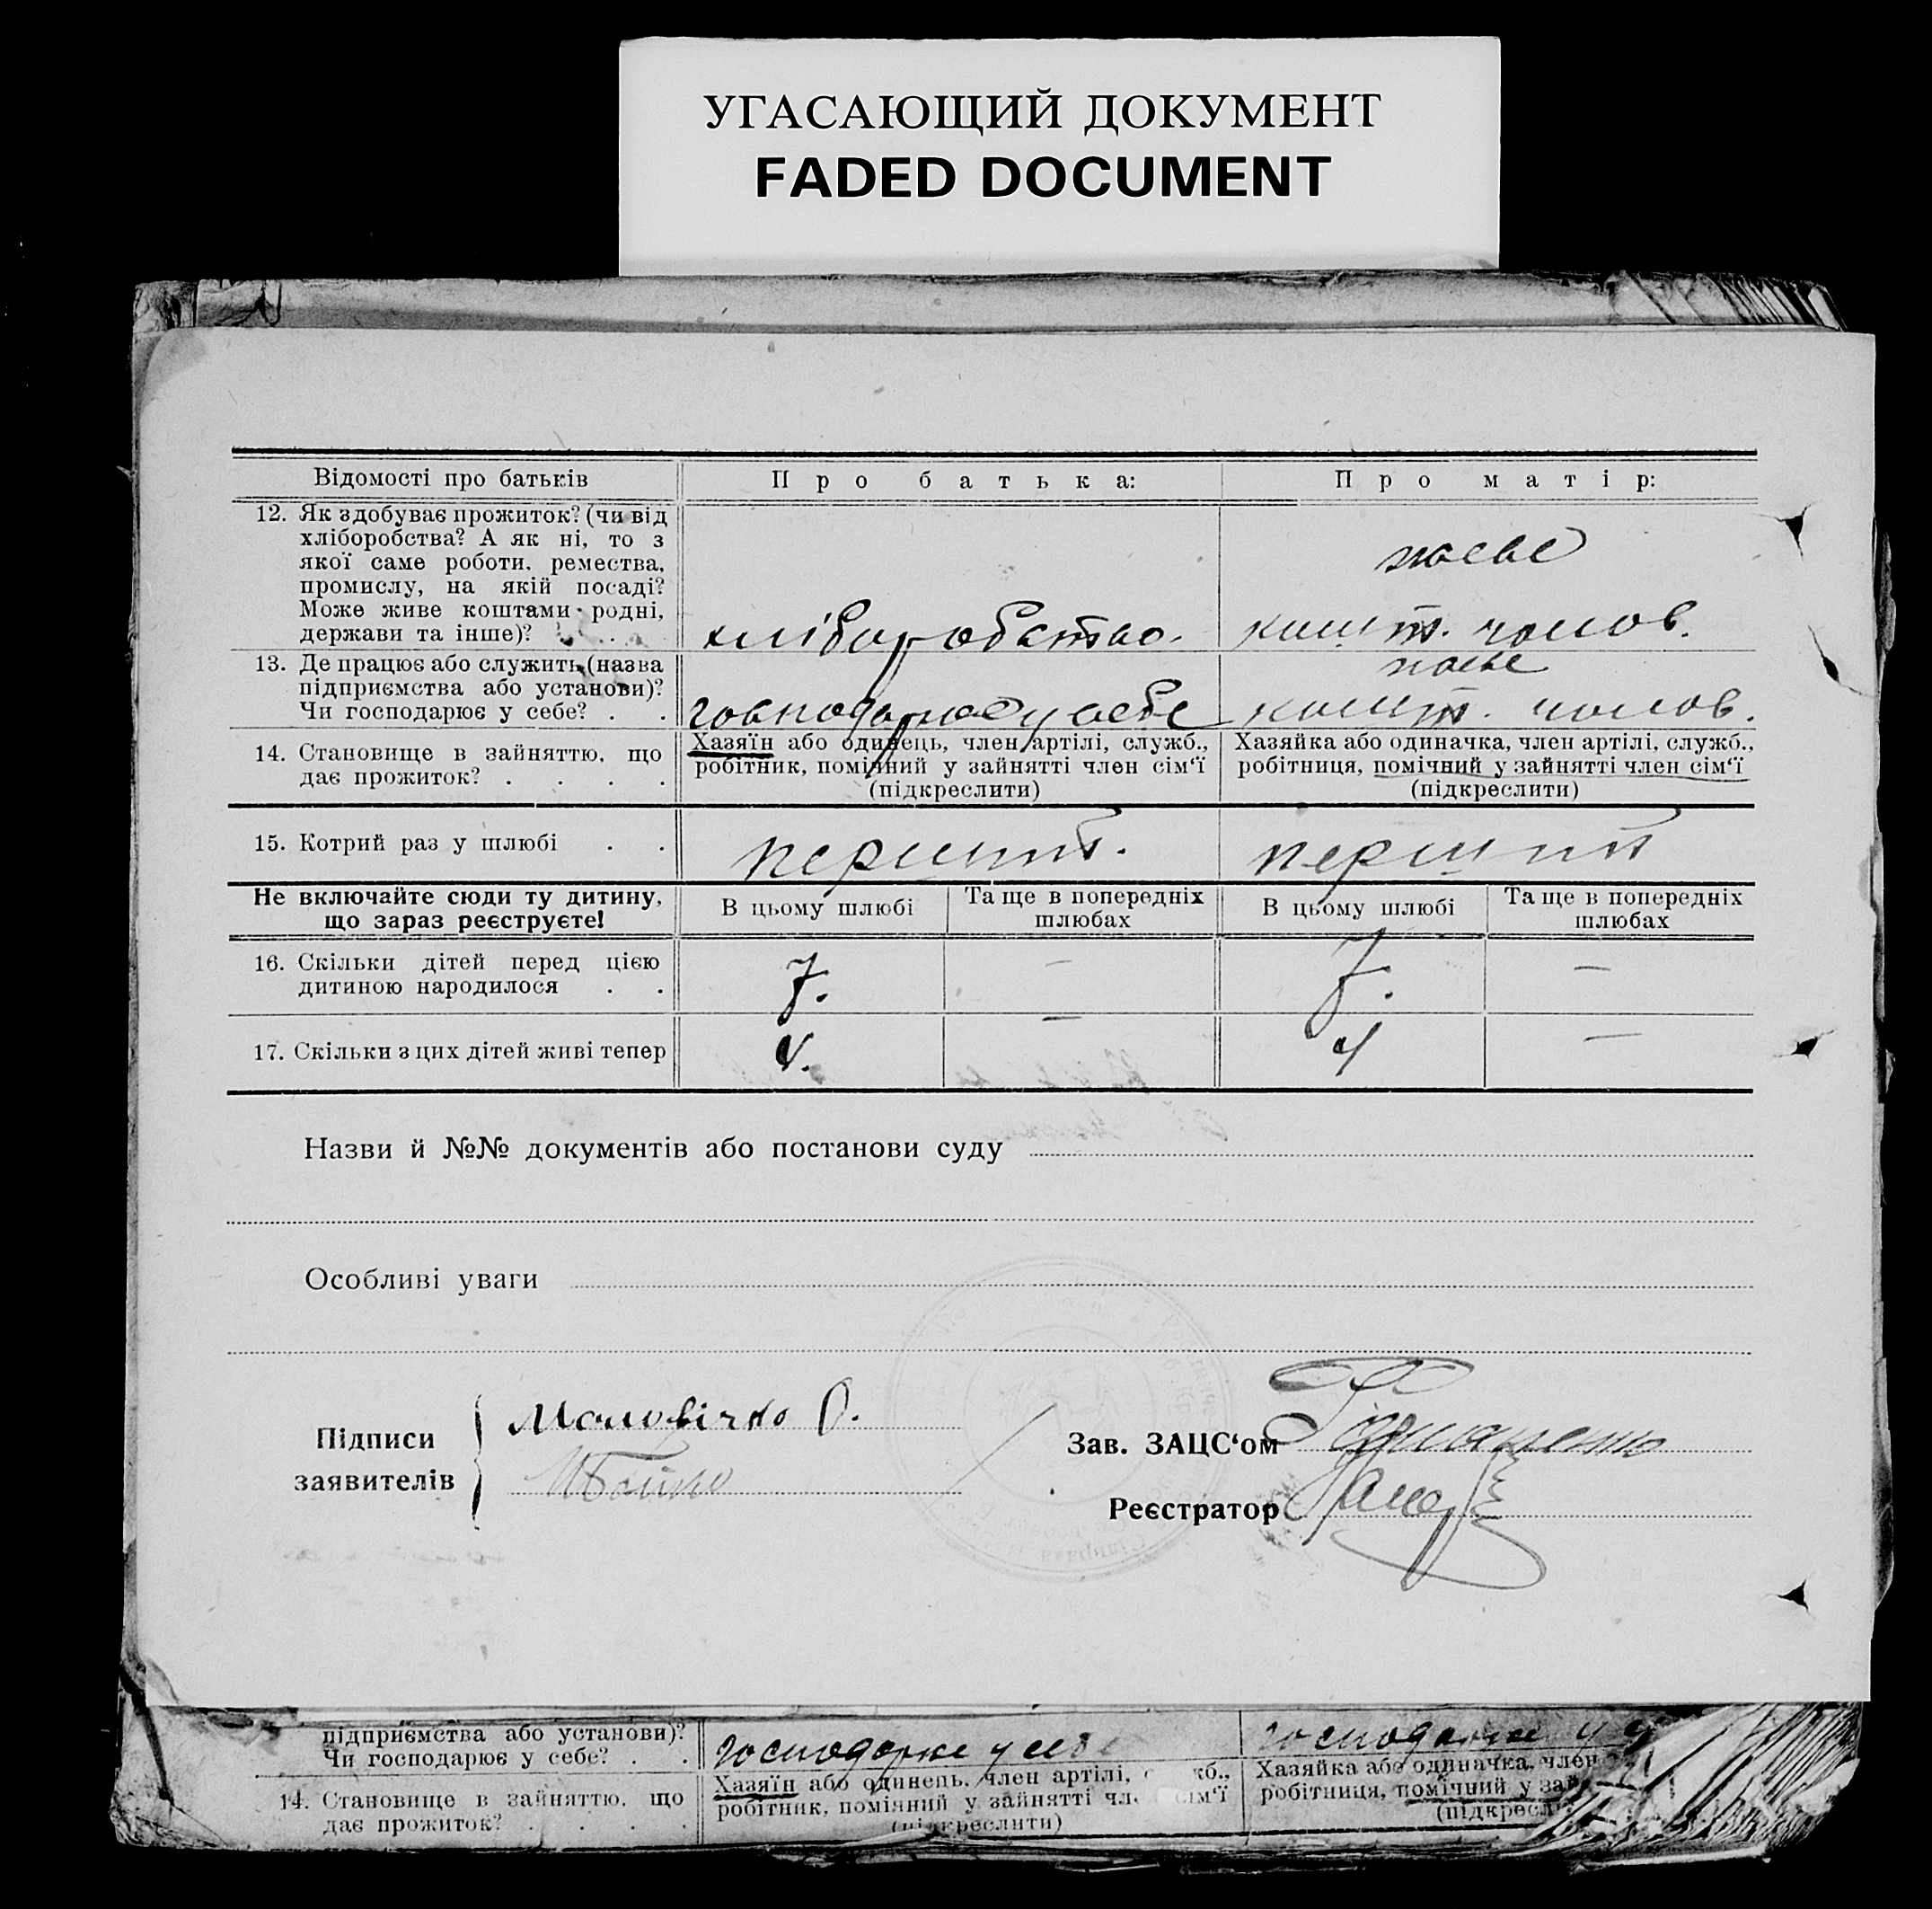 УГАСАЮЩИЙ ДОКУМЕНТ
FADED DOCUMENT
Відомості про батьків
Про батька:
Про матір:
12. Як здобуває прожиток? (чи від
хліборобства? А як ні, то з
якої саме роботи, ремества,
промислу, на якій посаді?
Може живе коштами родні,
держави та інше)?
хліборобство.
живе
кошт. чолов.
13. Де працює або служить (назва
підприємства або установи)?
Чи господарює у себе? . .
господарює у себе
живе
кошт. чолов.
14. Становище в зайняттю, що
дає прожиток? . . . .
Хазяїн або одинець, член артілі, служб.,
робітник, помічний у зайнятті член сім‘ї
(підкреслити)
Хазяйка або одиначка, член артілі, служб.,
робітниця, помічний у зайнятті член сім‘ї
(підкреслити)
15. Котрий раз у шлюбі . .
перший.
перший
Не включайте сюди ту дитину,
що зараз реєструєте!
В цьому шлюбі
Та ще в попередніх
шлюбах
В цьому шлюбі
Та ще в попередніх
шлюбах
16. Скільки дітей перед цією
дитиною народилося . .
7.
—
7.
—
17. Скільки з цих дітей живі тепер
4.
—
4
—
Назви й №№ документів або постанови суду
Особливі уваги
Підписи
заявителів
Зав. ЗАЦС‘ом
Реєстратор
підприємства або установи)?
Чи господарює у себе? . .
господарює у себе
господарює у
14. Становище в зайняттю, що
дає прожиток? . . . .
Хазяїн або одинець, член артілі,
робітник, помічний у зайнятті сім‘ї
(підкреслити)
Хазяйка або одиначка, член
робітниця, помічний у